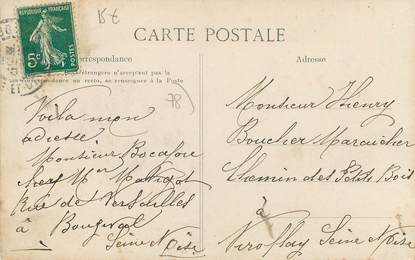 15 €
RÉPUBLIQUE FRANÇAISE
5c
POSTES
CARTE POSTALE
Correspondance
Adresse
étrangers n'acceptent pas la
au recto, se renseigner à la Poste
78
Voila mon
adresse
Monsieur
chez Mr
Rue de Versailles
à Bougival
Seine et Oise
Monsieur Thierry
Boucher Maraicher
Chemin des Petits Bois
à
Viroflay Seine et Oise